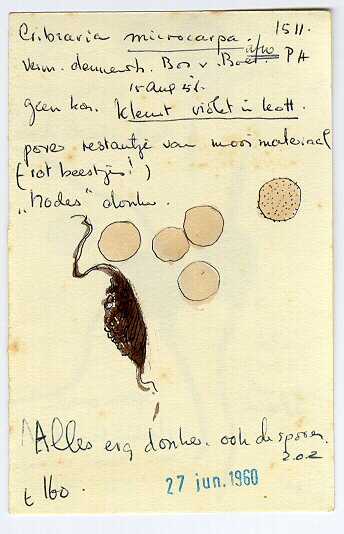 Cribraria microcarpa. afto 1511.
verm. dennenh. Bos v. Boet PA
15 Aug 56.
geen kor. kleurt violet in leott.
pover restantje van mooi materiaal
(rot beestjes!)
"Nodes" donker.
Alles erg donker. ook de sporen.
z.o.z
t 160.
27 jun. 1960